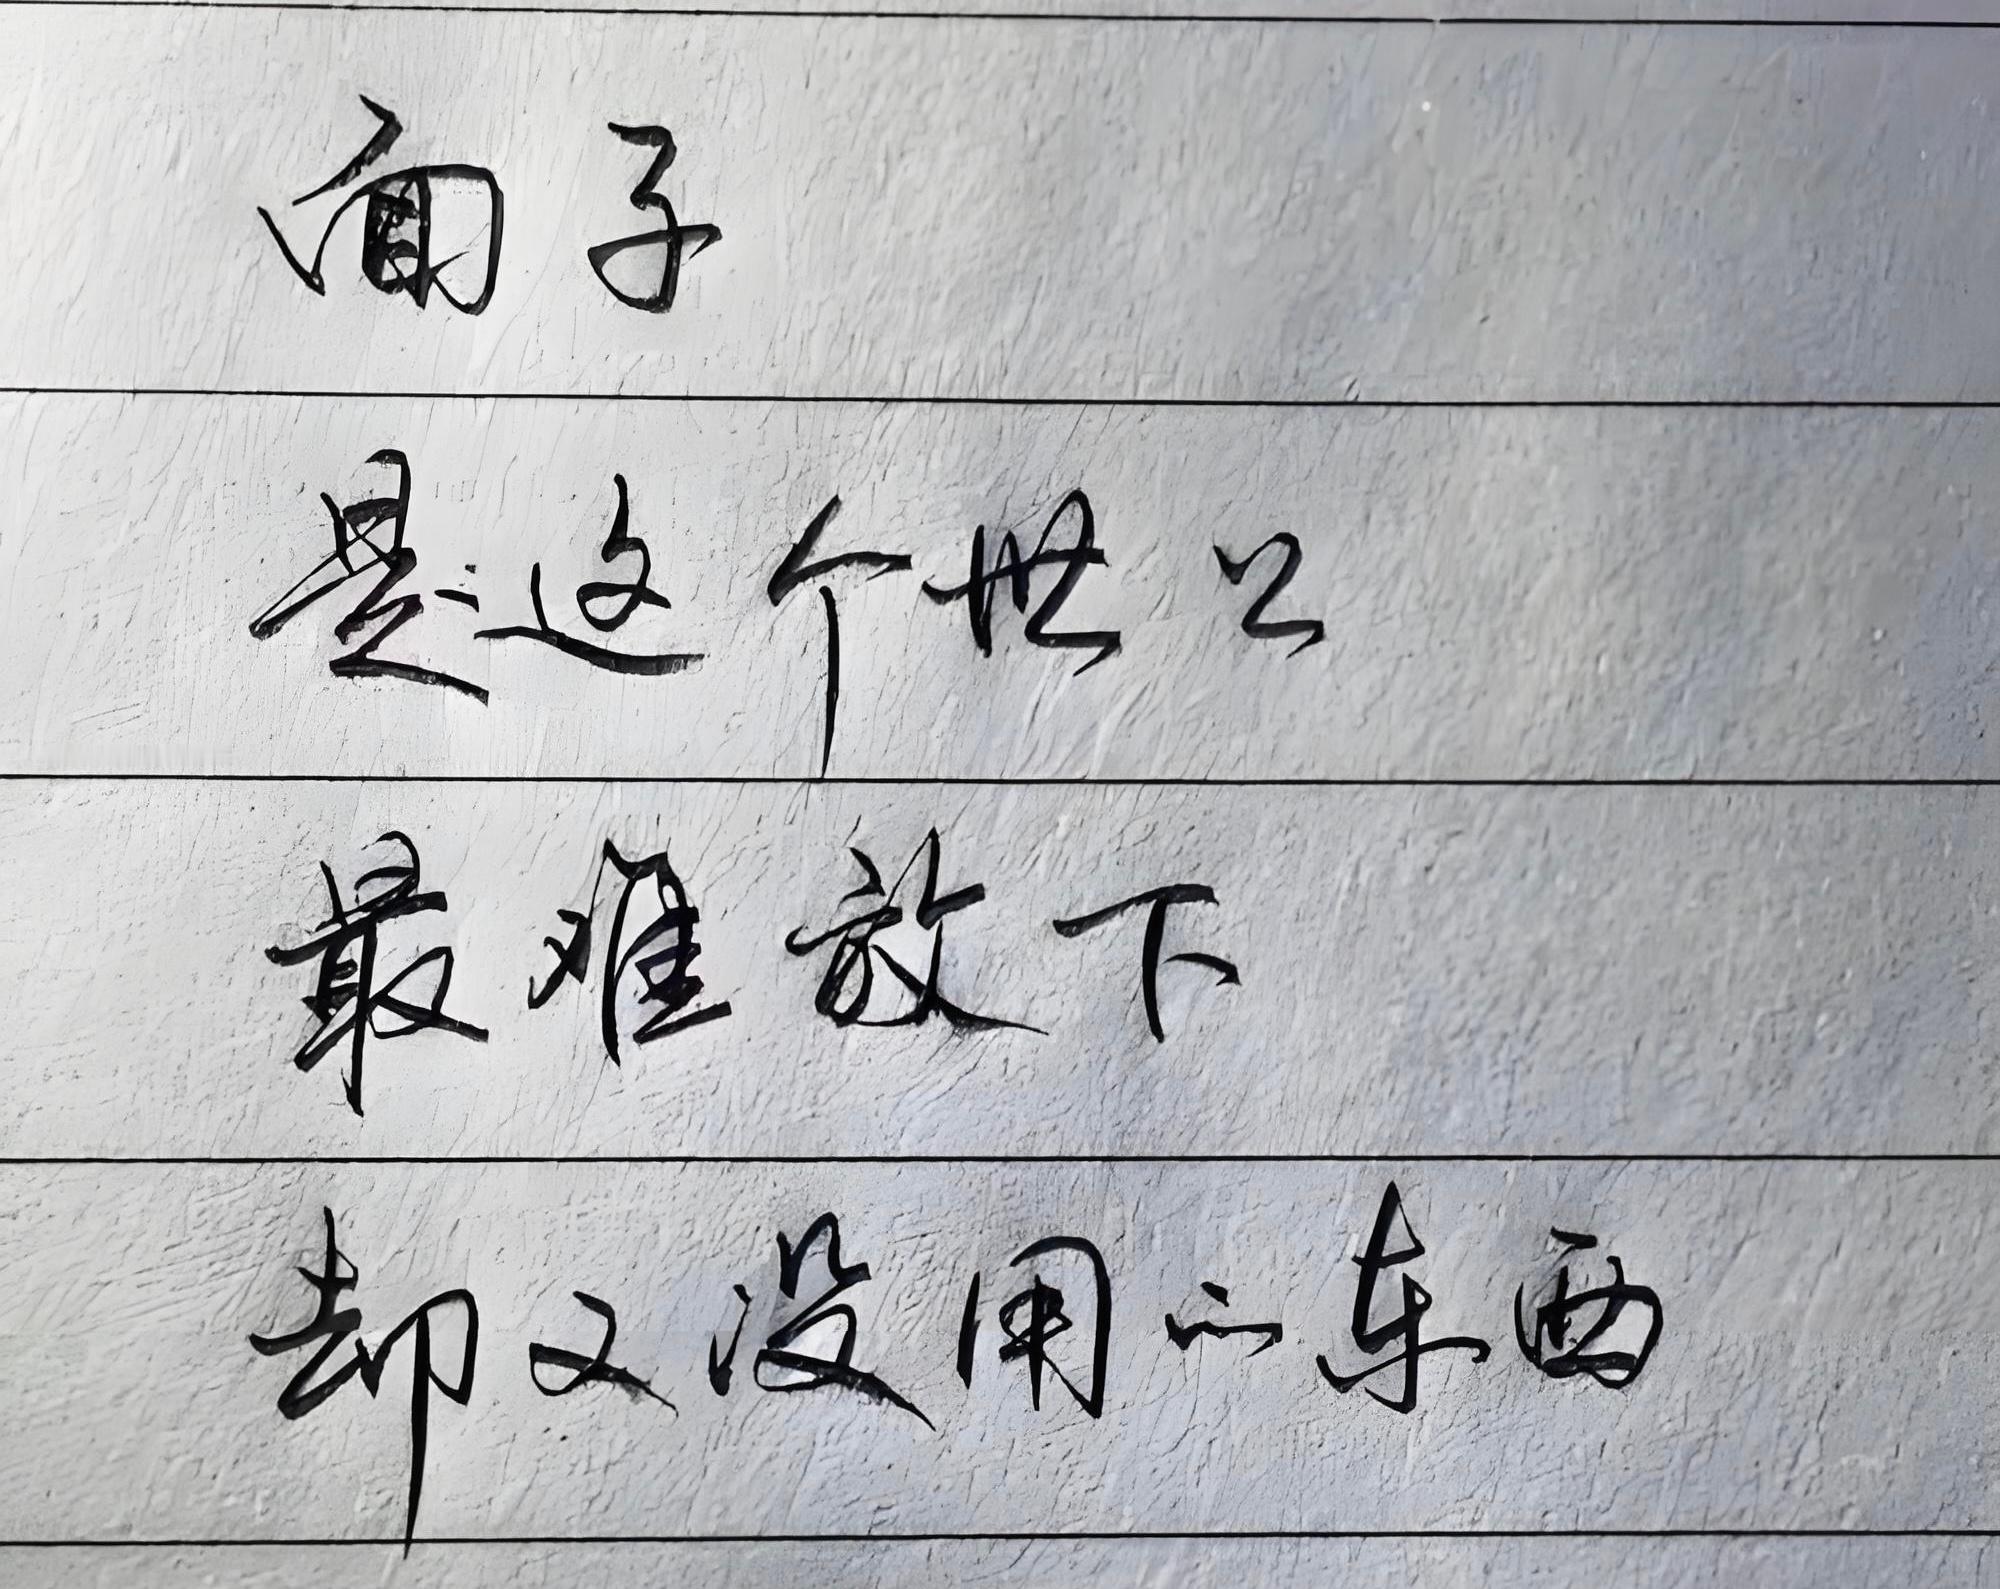 面子
是这个世上
最难放下
却又没用的东西